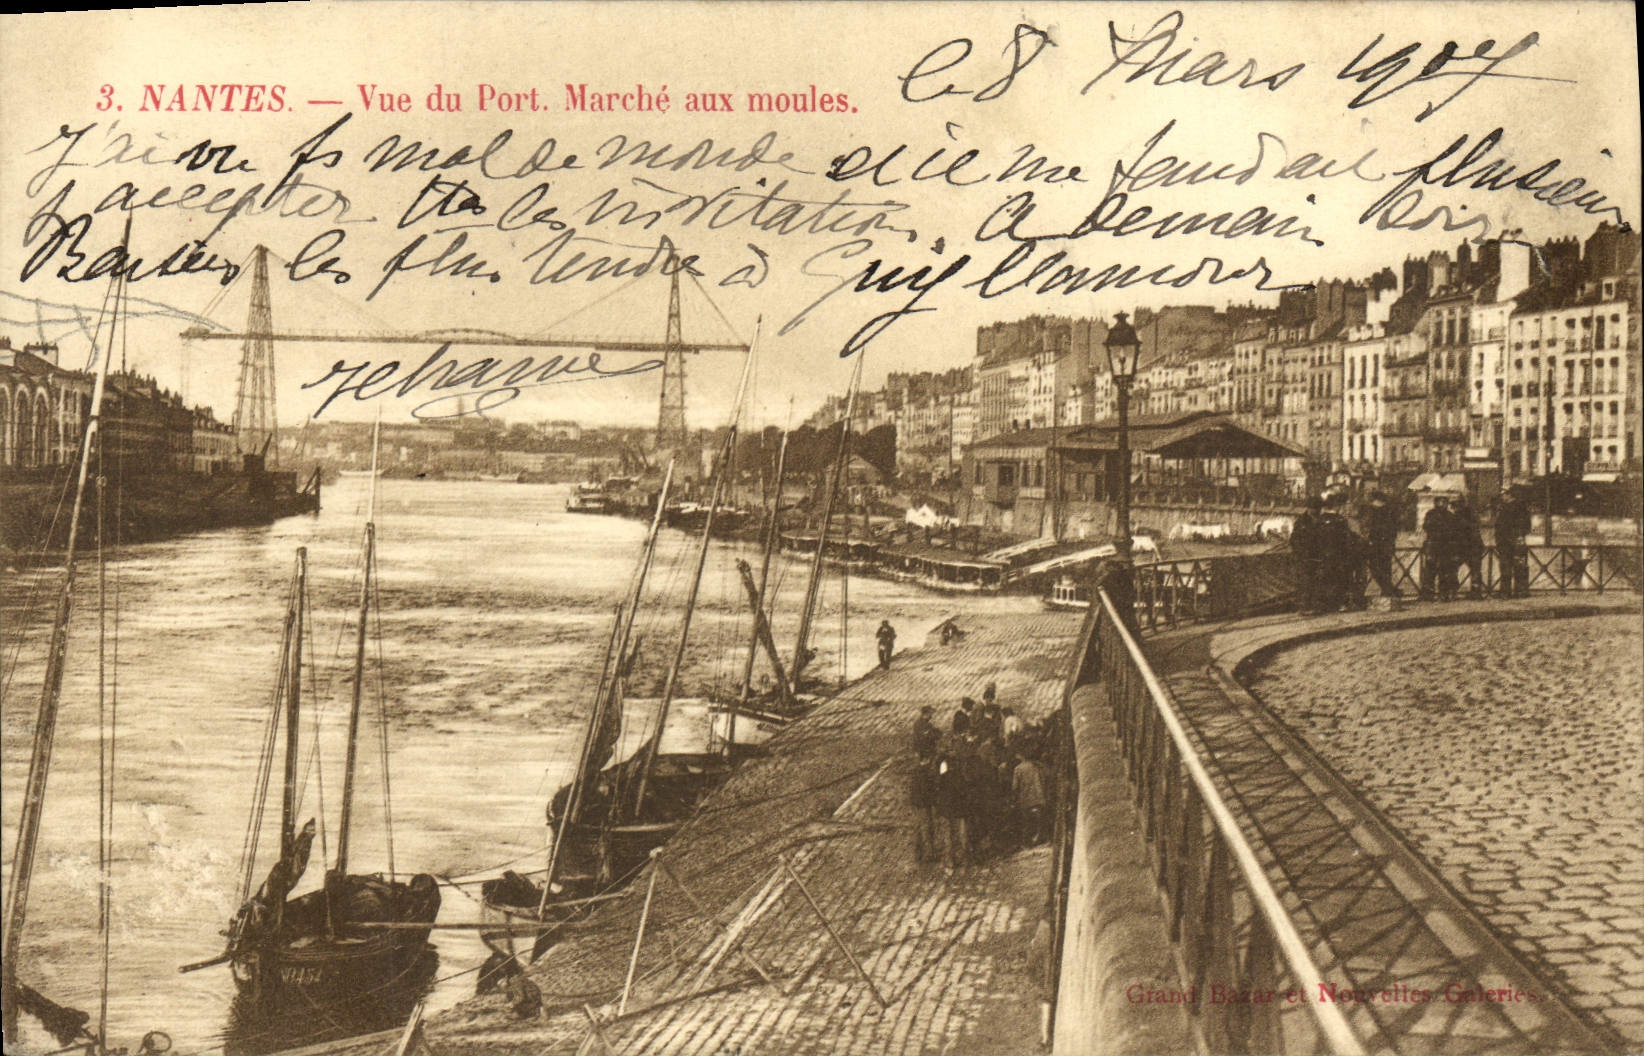 le 8 Mars 1907
3. NANTES. — Vue du Port. Marché aux moules.
J'ai vu ps mal de monde et il me faudrait plusieurs
j accepter ttes les invitations. A demain soir
Baisers les plus tendres à Guy
Jehanne
Grand Bazar et Nouvelles Galeries.